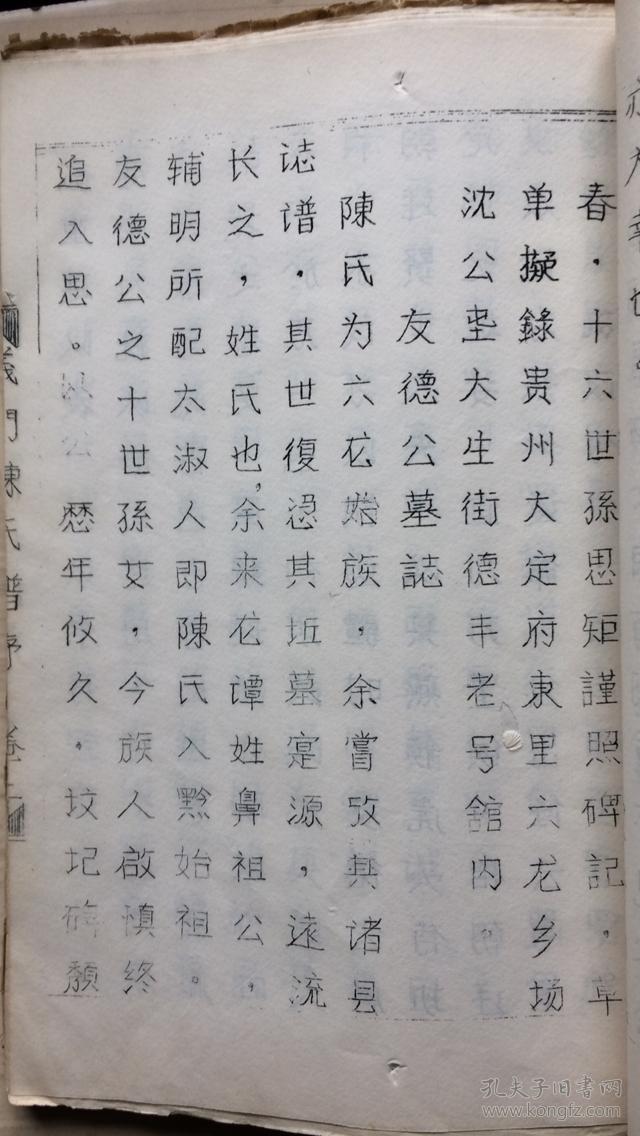 春，十六世孫思矩謹照碑記，草
单擬錄贵州大定府東里六龙乡场
沈公垔大生街德丰老号舘内，
友德公墓誌
陳氏为六龙始族，余嘗攷其诸县
誌谱，其世復忍其坵墓寔源，遠流
长之，姓氏也，余来龙谭姓鼻祖公，
辅明所配太淑人即陳氏入黔始祖。
友德公之十世孫女，今族人啟慎終
追入思。公歷年攸久，坟圮碑頹
義門陳氏譜序
孔夫子旧书网
www.kongfz.com